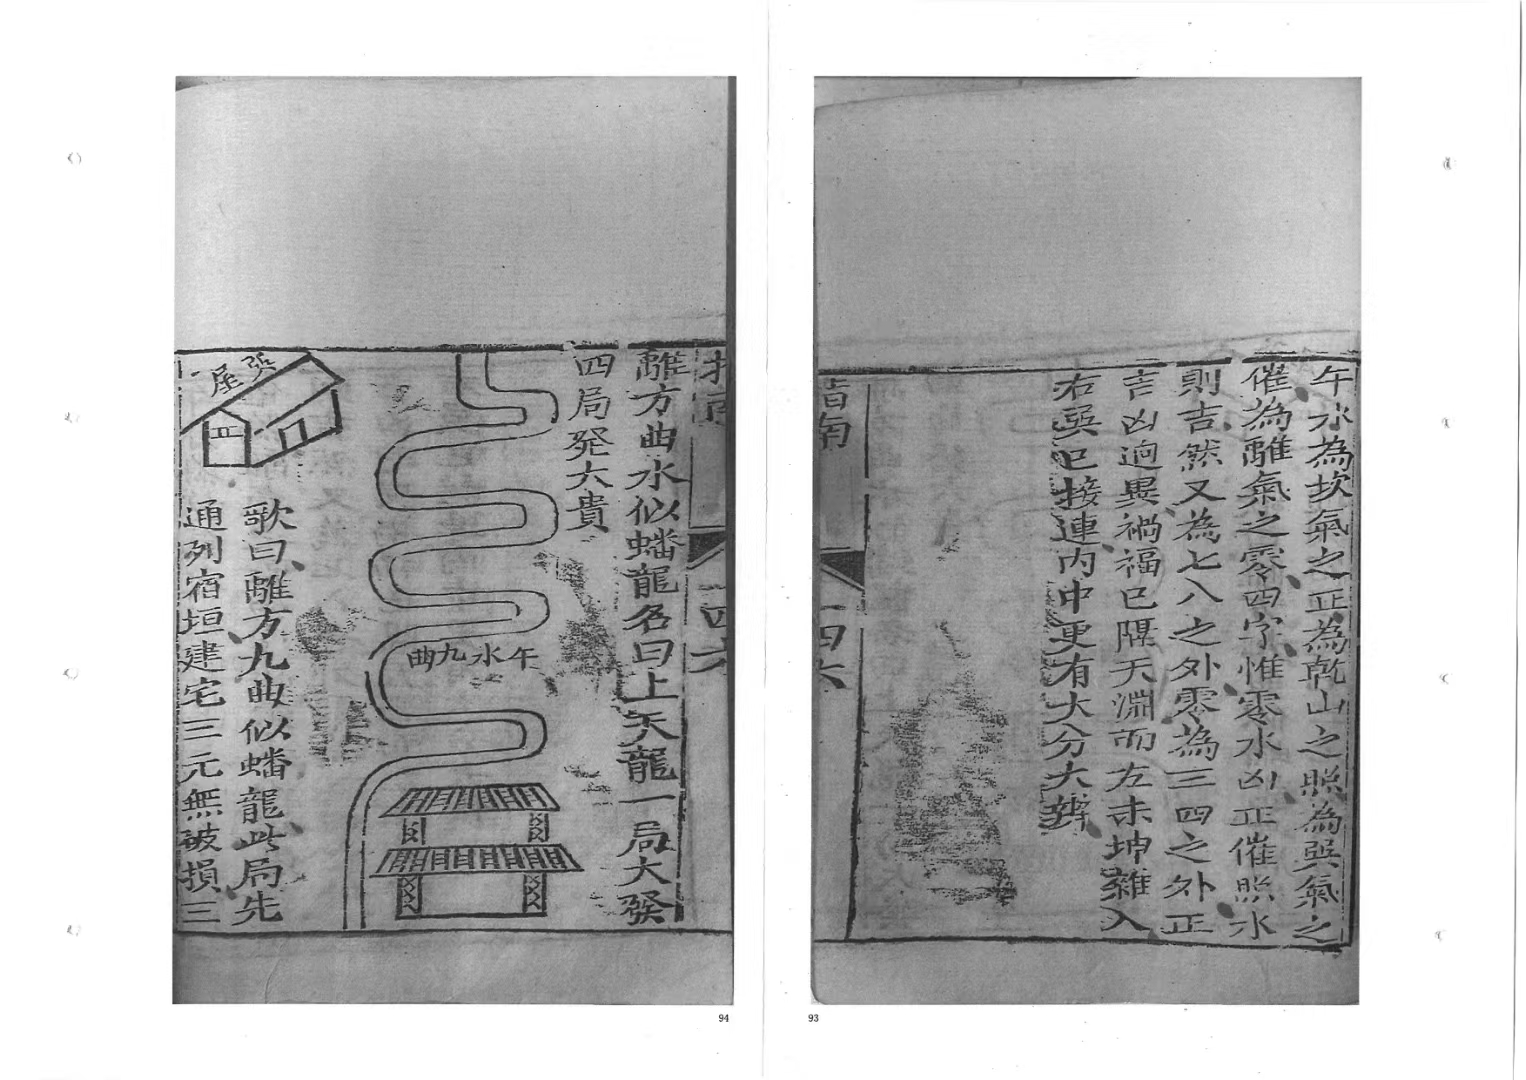 午水為坎氣之正為乾山之照為巽氣之
催為離氣之零四字惟零水凶正催照水
則吉然又為七八之外零為三四之外正
言凶迥異禍福已隔天淵而左未坤雜入
右巽巳接連內中更有大分大辨
指南
四六
93
指南
四六
離方曲水似蟠龍名曰上天龍一局大發
四局發大貴
午水九曲
屋
歌曰離方九曲似蟠龍此局先
通列宿垣建宅三元無破損三
94